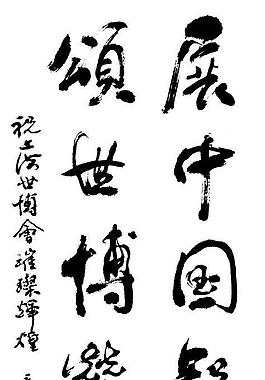 展中国
頌世博
祝上海世博會璀璨輝煌